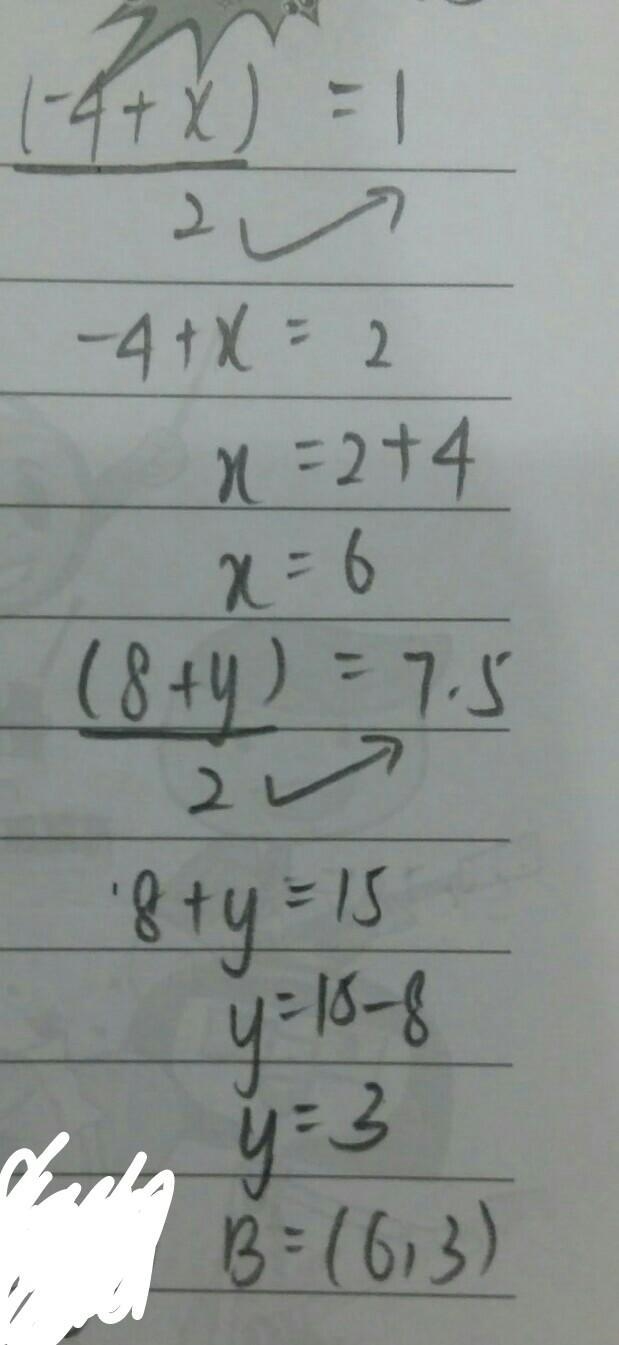 (-4+x) = 1
2
-4+x = 2
x = 2+4
x = 6
(8+y) = 7.5
2
8+y = 15
y = 15-8
y = 3
B = (6,3)